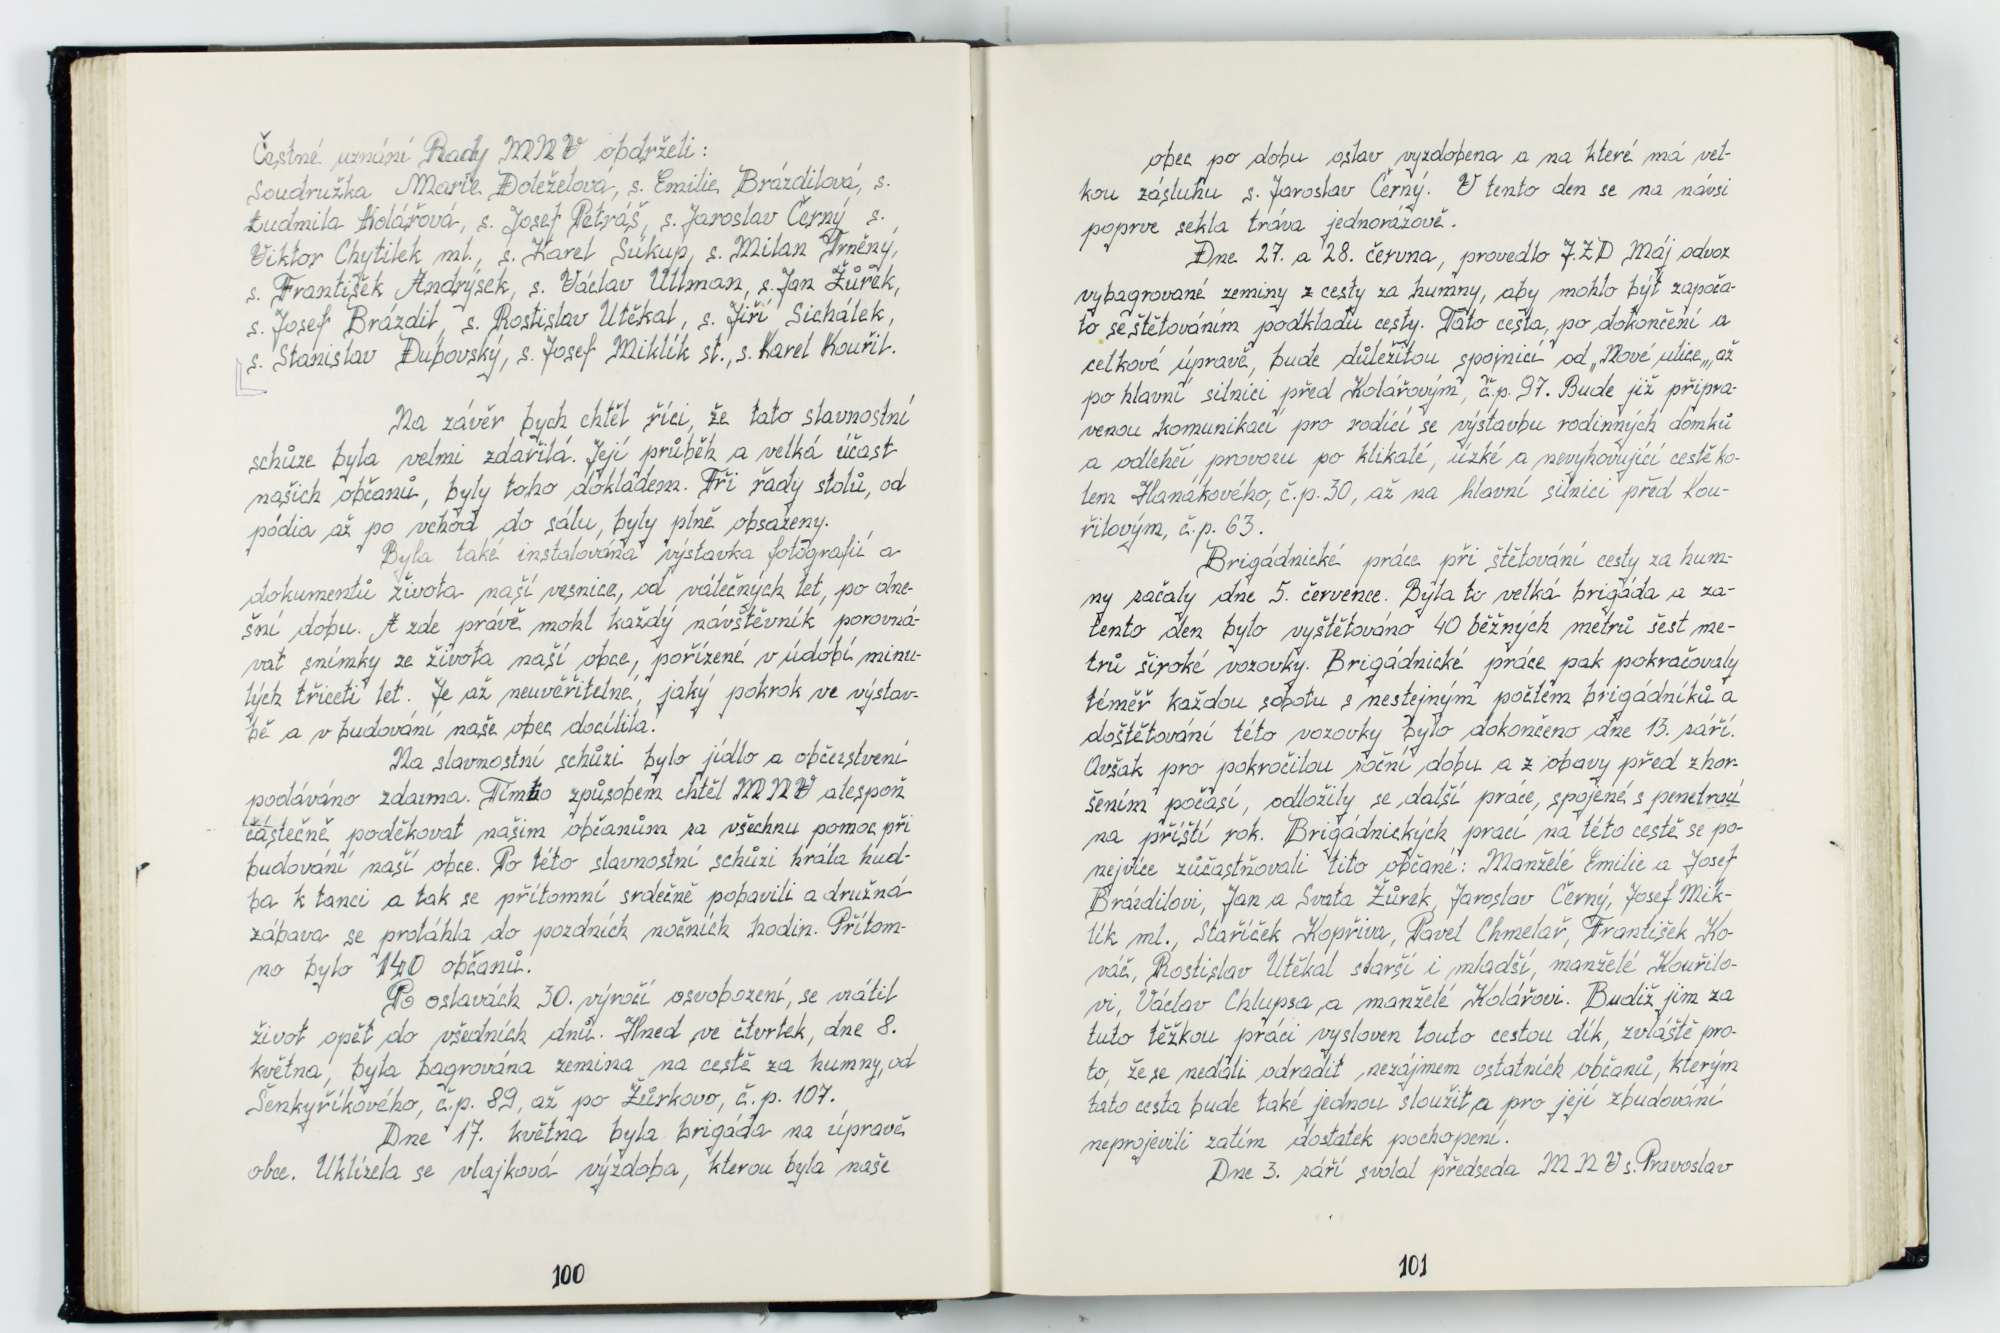 Čestné uznání Rady MNV obdrželi:
Soudružka Marie Doleželová, s. Emilie Brázdilová, s.
Ludmila Kolářová, s. Josef Petráš, s. Jaroslav Černý s.
Viktor Chytilek ml., s. Karel Sukup, s. Milan Trněný,
s. František Andrýsek, s. Václav Ullman, s. Jan Žůrek,
s. Josef Brázdil, s. Rostislav Utěkal, s. Jiří Sichálek,
s. Stanislav Dubovský, s. Josef Miklík st., s. Karel Kouřil.
Na závěr bych chtěl říci, že tato slavnostní
schůze byla velmi zdařilá. Její průběh a velká účast
našich občanů, byly toho dokladem. Tři řady stolů, od
pódia až po vchod do sálu, byly plně obsazeny.
Byla také instalována výstavka fotografií a
dokumentů života naší vesnice, od válečných let, po dne-
šní dobu. A zde právě mohl každý návštěvník porovná-
vat snímky ze života naší obce, pořízené v údobí minu-
lých třiceti let. Je až neuvěřitelné, jaký pokrok ve výstav-
bě a v budování naše obec docílila.
Na slavnostní schůzi bylo jídlo a občerstvení
podáváno zdarma. Tímto způsobem chtěl MNV alespoň
částečně poděkovat našim občanům za všechnu pomoc při
budování naší obce. Po této slavnostní schůzi hrála hud-
ba k tanci a tak se přítomní srdečně pobavili a družná
zábava se protáhla do pozdních nočních hodin. Přítom-
no bylo 140 občanů.
Po oslavách 30. výročí osvobození, se vrátil
život opět do všedních dnů. Hned ve čtvrtek, dne 8.
května, byla bagrována zemina na cestě za humny, od
Šenkyříkového, č.p. 89, až po Žůrkovo, č.p. 107.
Dne 17. května byla brigáda na úpravě
obce. Uklízela se vlajková výzdoba, kterou byla naše
100
obec po dobu oslav vyzdobena a na které má vel-
kou zásluhu s. Jaroslav Černý. V tento den se na návsi
poprve sekla tráva jednorázově.
Dne 27. a 28. června, provedlo JZD Máj odvoz
vybagrované zeminy z cesty za humny, aby mohlo být započa-
to se štětováním podkladu cesty. Tato cesta, po dokončení a
celkové úpravě, bude důležitou spojnicí od „Nové ulice„, až
po hlavní silnici před Kolářovým, č.p. 97. Bude již připra-
venou komunikací pro rodící se výstavbu rodinných domků
a odlehčí provozu po klikaté, úzké a nevyhovující cestě ko-
lem Hanákového, č.p. 30, až na hlavní silnici před Kou-
řilovým, č.p. 63.
Brigádnické práce při štětování cesty za hum-
ny začaly dne 5. července. Byla to velká brigáda a za-
tento den bylo vyštětováno 40 běžných metrů šest me-
trů široké vozovky. Brigádnické práce pak pokračovaly
téměř každou sobotu s nestejným počtem brigádníků a
doštětování této vozovky bylo dokončeno dne 13. září.
Avšak pro pokročilou roční dobu a z obavy před zhor-
šením počasí, odložily se další práce, spojené s penetrací
na příští rok. Brigádnických prací na této cestě se po-
nejvíce zúčastňovali tito občané: Manželé Emilie a Josef
Brázdilovi, Jan a Svata Žůrek, Jaroslav Černý, Josef Mik-
lík ml., Staříček Kopřiva, Pavel Chmelař, František Ko-
váč, Rostislav Utěkal starší i mladší, manželé Kouřilo-
vi, Václav Chlupsa a manželé Kolářovi. Budiž jim za
tuto těžkou práci vysloven touto cestou dík, zvláště pro-
to, že se nedali odradit nezájmem ostatních občanů, kterým
tato cesta bude také jednou sloužit a pro její zbudování
neprojevili zatím dostatek pochopení.
Dne 3. září svolal předseda MNV s. Pravoslav
101